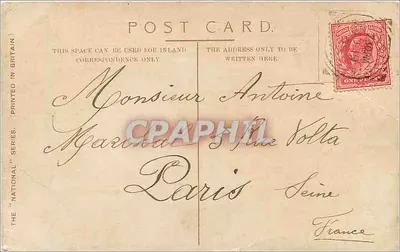 POST CARD.
THIS SPACE CAN BE USED FOR INLAND
CORRESPONDENCE ONLY
THE ADDRESS ONLY TO BE
WRITTEN HERE.
THE "NATIONAL" SERIES. PRINTED IN BRITAIN
Monsieur Antoine
3 Rue Volta
Paris
Seine
France
CPAPHIL